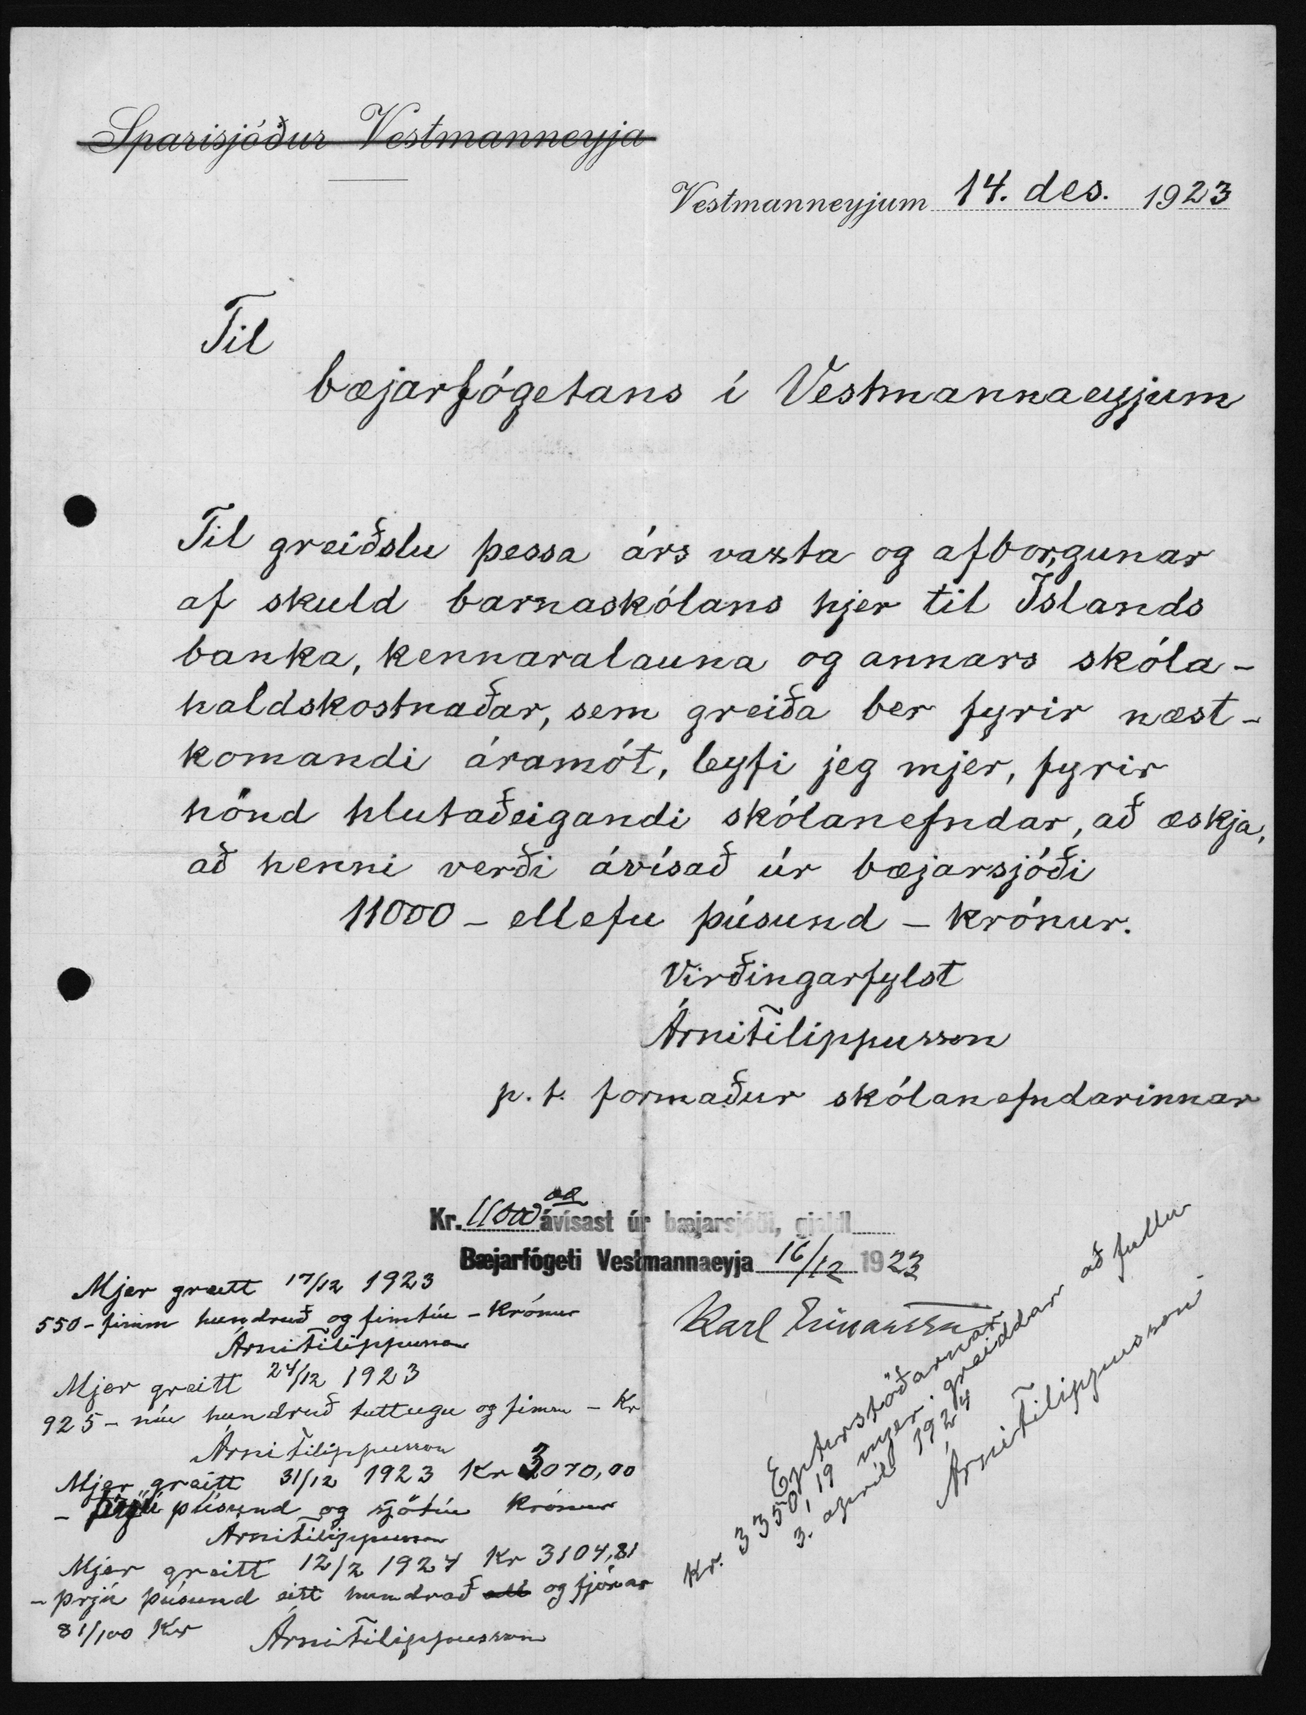 Sparisjóður Vestmanneyja
Vestmanneyjum 14. des. 1923
Til
bæjarfógetans í Vestmannaeyjum
Til greiðslu þessa árs vaxta og afborgunar
af skuld barnaskólans hjer til Íslands
banka, kennaralauna og annars skóla-
haldskostnaðar, sem greiða ber fyrir næst-
komandi áramót, leyfi jeg mjer, fyrir
hönd hlutaðeigandi skólanefndar, að æskja,
að henni verði ávísað úr bæjarsjóði
11000 - ellefu þúsund - krónur.
Virðingarfylst
Árni Filippusson
p.t. formaður skólanefndarinnar
Kr. 11000 00 ávísast úr bæjarsjóði, gjaldl
Bæjarfógeti Vestmannaeyja 16/12 1923
Karl Einarsson
Mjer greitt 17/12 1923
550 - fimm hundruð og fimtíu - Krónur
Árni Filippusson
Mjer greitt 24/12 1923
925 - níu hundruð tuttugu og fimm - Kr
Árni Filippusson
Mjer greitt 31/12 1923 Kr 3070,00
- þrjú þúsund og sjötíu krónur
Árni Filippusson
Mjer greitt 12/2 1924 Kr 3104,81
- þrjú þúsund eitt hundrað og fjórar
81/100 Kr Árni Filippusson
Eptirstöðvarnar
Kr. 3350,19 mjer greiddar að fullu
3. apríl 1924
Árni Filippusson